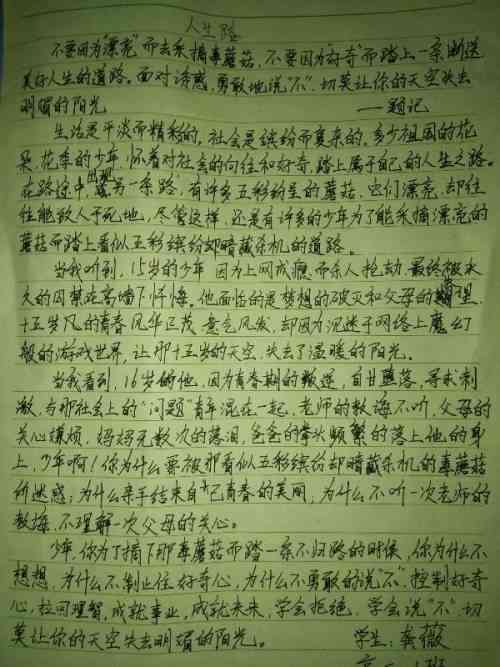 人生路
不要因为“漂亮”而去采摘毒蘑菇，不要因为“好奇”而踏上一条断送
美好人生的道路。面对诱惑，勇敢地说“不”，切莫让你的天空失去
明媚的阳光
——题记
生活是平淡而精彩的。社会是缤纷而复杂的，多少祖国的花
朵，花季的少年，怀着对社会的向往和好奇，踏上属于自己的人生之路。
在路途中，出现另一条路，有许多五彩纷呈的蘑菇，它们漂亮，却往
往能致人于死地，尽管这样，还是有许多的少年为了能采摘漂亮的
蘑菇而踏上看似五彩缤纷却暗藏杀机的道路。
当我听到，15岁的少年，因为上网成瘾而杀人抢劫，最终被永
久的囚禁在高墙下忏悔。他面临的是梦想的破灭和父母的
十五岁风的青春风华正茂，意气风发，却因为沉迷于网络上魔幻
般的游戏世界，让那十五岁的天空，失去了温暖的阳光。
当我看到，16岁的他，因为青春期的叛逆，自甘堕落，寻求刺
激，与那社会上的“问题”青年混在一起，老师的教诲不听，父母的
关心嫌烦，妈妈无数次的落泪，爸爸的拳头频繁的落上他的身
上，少年啊！你为什么要被那看似五彩缤纷却暗藏杀机的毒蘑菇
所迷惑；为什么亲手结束自己青春的美丽，为什么不听一次老师的
教诲，不理解一次父母的关心。
少年，你为了摘下那毒蘑菇而踏一条不归路的时候，你为什么不
想想，为什么不制止住好奇心，为什么不勇敢的说“不”，控制好奇
心，拉回理智，成就事业，成就未来，学会拒绝，学会说“不”，切
莫让你的天空失去明媚的阳光。
学生：龚薇